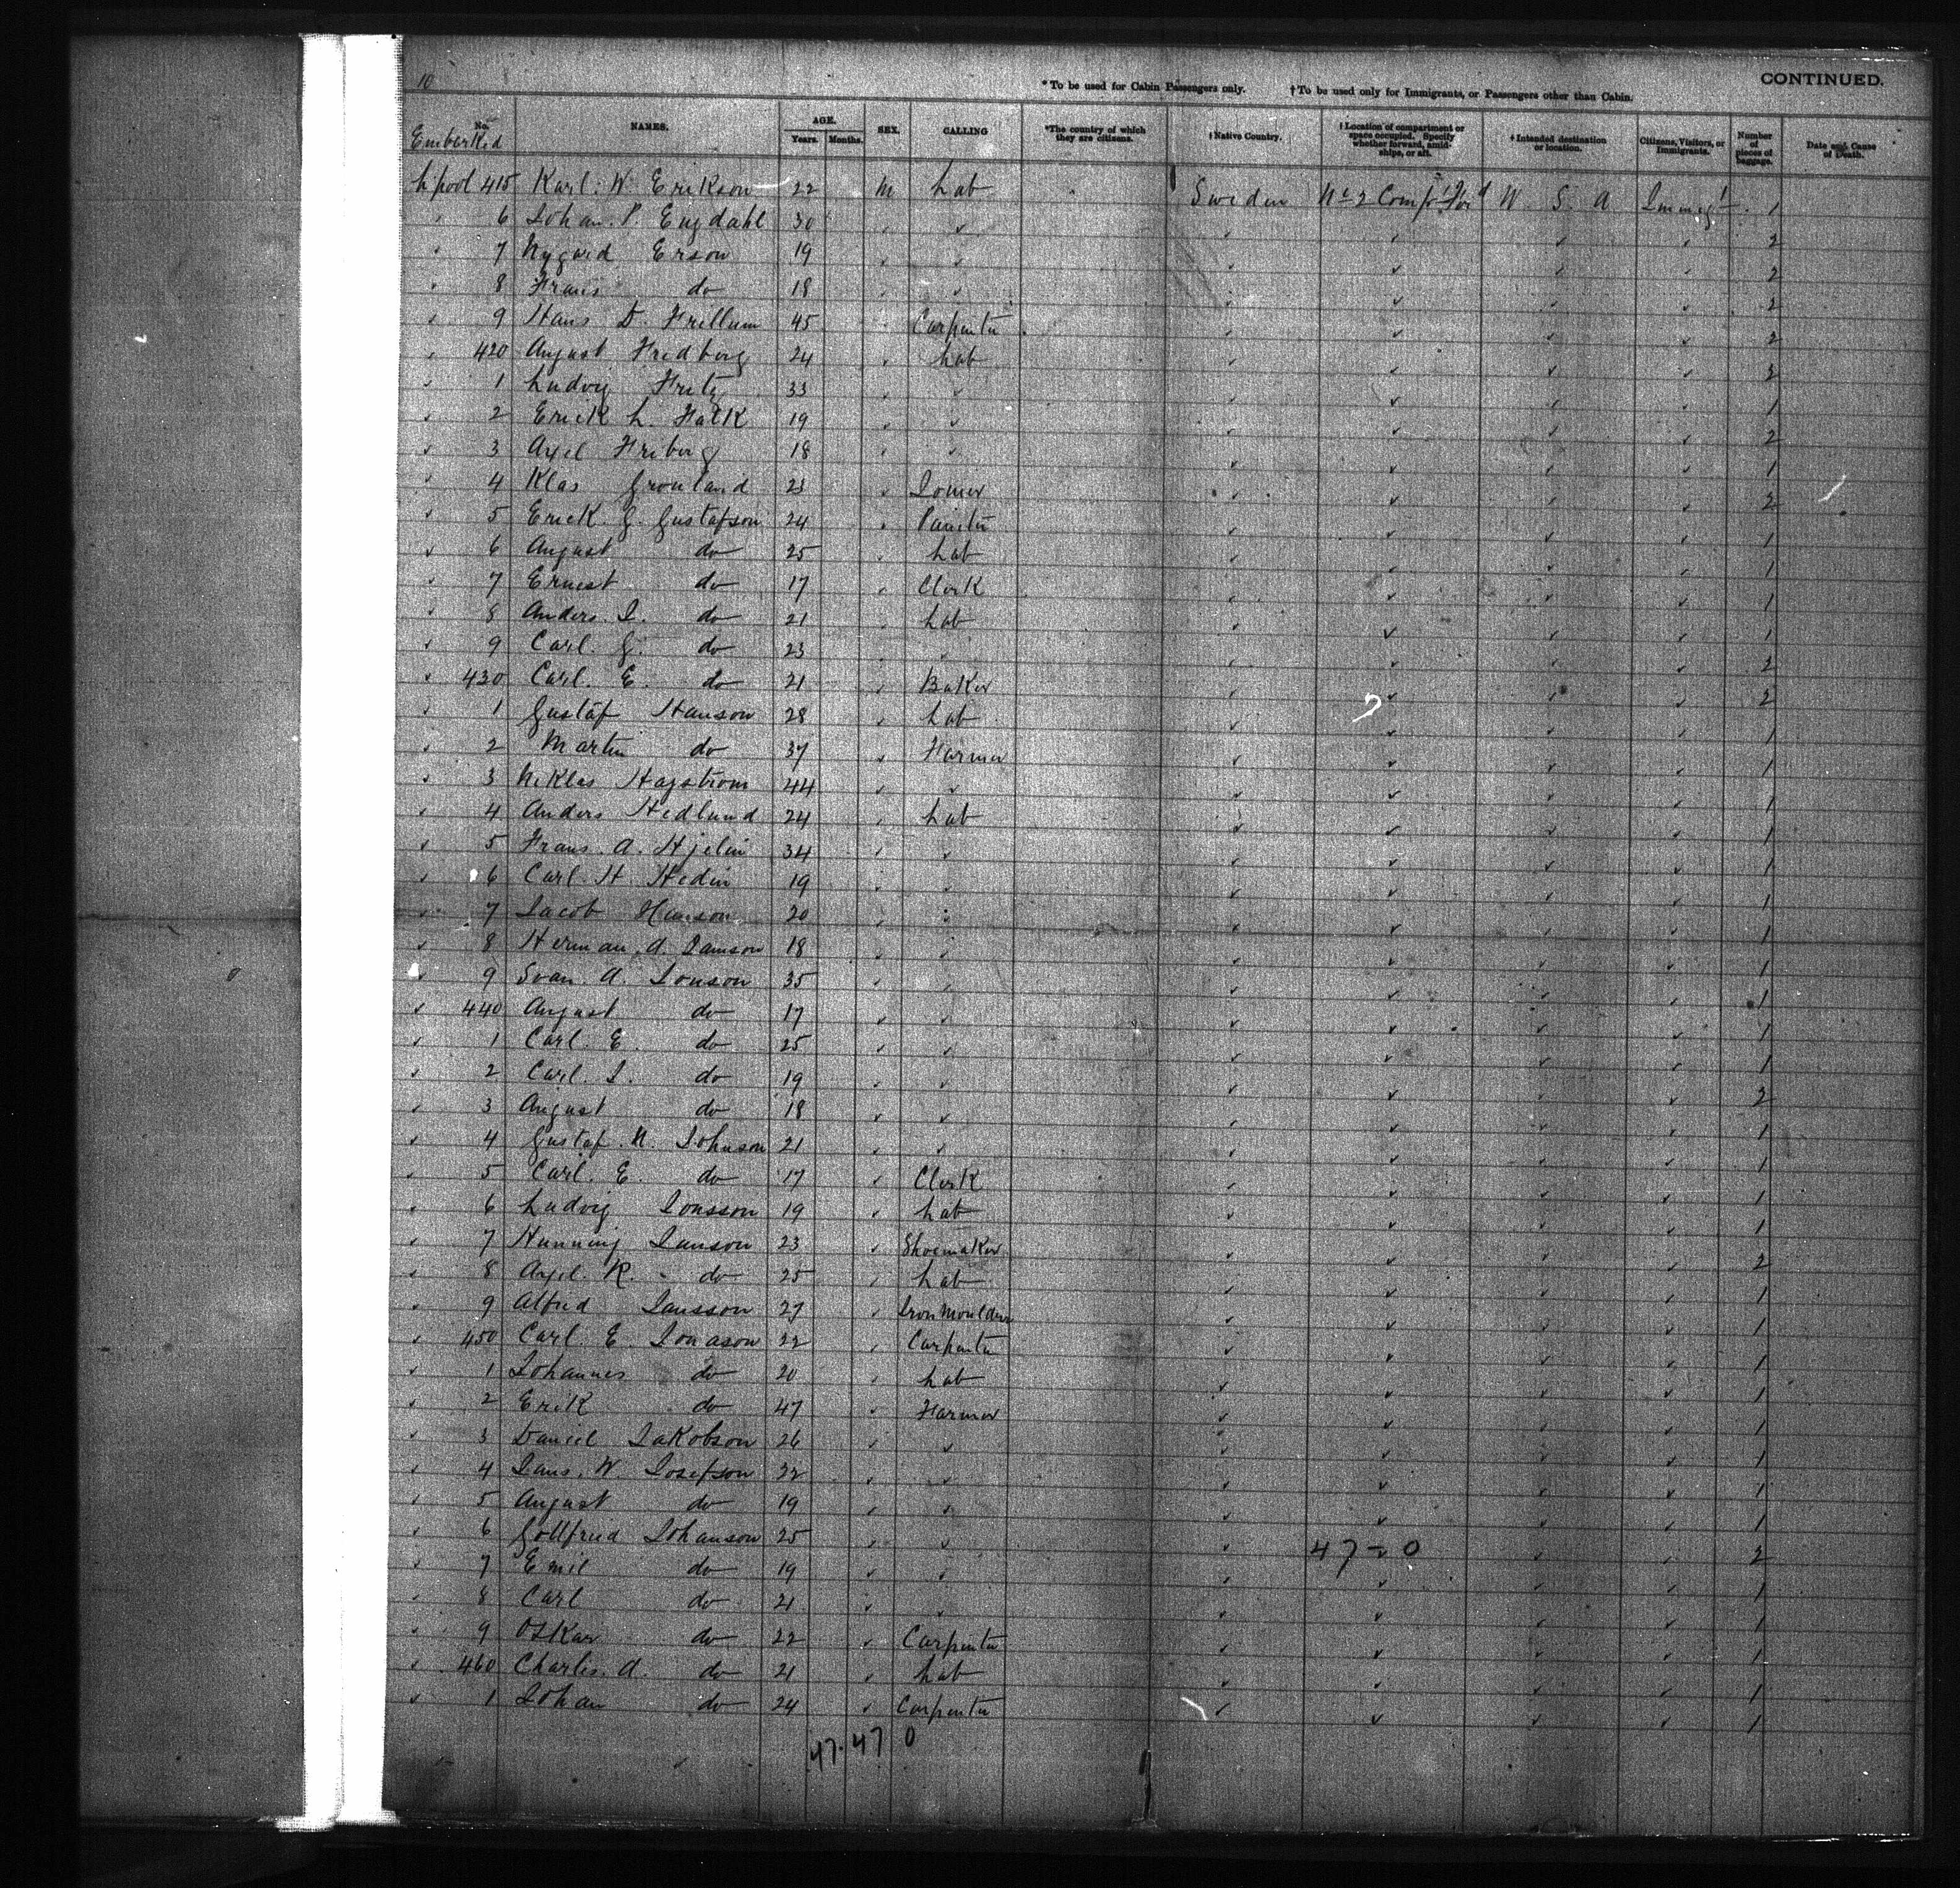 10
* To be used for Cabin Passengers only. † To be used only for Immigrants, or Passengers other than Cabin. CONTINUED.
No. Embarked NAMES. AGE. Years. Months. SEX. CALLING *The country of which they are citizens. †Native Country. †Location of compartment or space occupied. Specify whether forward, amidships, or aft. †Intended destination or location. Citizens, Visitors, or Immigrants. Number of pieces of baggage. Date and Cause of Death.
L'pool 415 Karl. W. Erikson 22 M Lab Sweden No 2 Comp't For'd U. S. A Immig't 1
6 Johan. P. Engdahl 30 ✓ 2
7 Nygard Erson 19 ✓ 2
8 Frans do 18 ✓ 2
9 Hans D. Frillum 45 Carpenter 2
420 August Fredberg 24 Lab 3
1 Ludvig Fritz 33 ✓ 1
2 Erick L. Falk 19 ✓ 2
3 Axel Friberg 18 ✓ 1
4 Klas Gronland 23 2
5 Erick. G. Gustafson 24 Painter 1
6 August do 25 Lab 1
7 Ernest do 17 Clerk 1
8 Anders. J. do 21 Lab 1
9 Carl. G. do 23 ✓ 2
430 Carl. E. do 21 Baker 2
1 Gustaf Hanson 28 Lab 1
2 Martin do 37 Farmer 1
3 Niklas Hagstrom 44 ✓ 1
4 Anders Hedlund 24 Lab 1
5 Frans. A. Hjelin 34 ✓ 1
6 Carl. H Hedin 19 ✓ 1
7 Jacob Hanson 20 1
8 Herman. A. Janson 18 ✓ 1
9 Svan. A. Jonson 35 ✓ 1
440 August do 17 ✓ 1
1 Carl. E. do 25 ✓ 1
2 Carl. J. do 19 ✓ 2
3 August do 18 ✓ 1
4 Gustaf. N. Johnson 21 ✓ 1
5 Carl. E. do 17 Clerk 1
6 Ludvig Jonsson 19 Lab 1
7 Hunning Janson 23 Shoemaker 2
8 Axel. R. do 25 Lab 1
9 Alfred Jansson 27 Iron Moulder 1
450 Carl. E. Jonason 22 Carpenter 1
1 Johannes do 20 Lab 1
2 Erik do 47 Farmer 1
3 Daniel Jakobson 26 ✓ 1
4 Jans. W. Josefson 22 ✓ 1
5 August do 19 ✓ 1
6 Gottfried Johanson 25 ✓ 47 - 0 2
7 Emil do 19 ✓ 1
8 Carl do 21 ✓ 1
9 Oskar do 22 Carpenter 1
460 Charles. A. do 21 Lab 1
1 Johan do 24 Carpenter 1
47 · 47 0